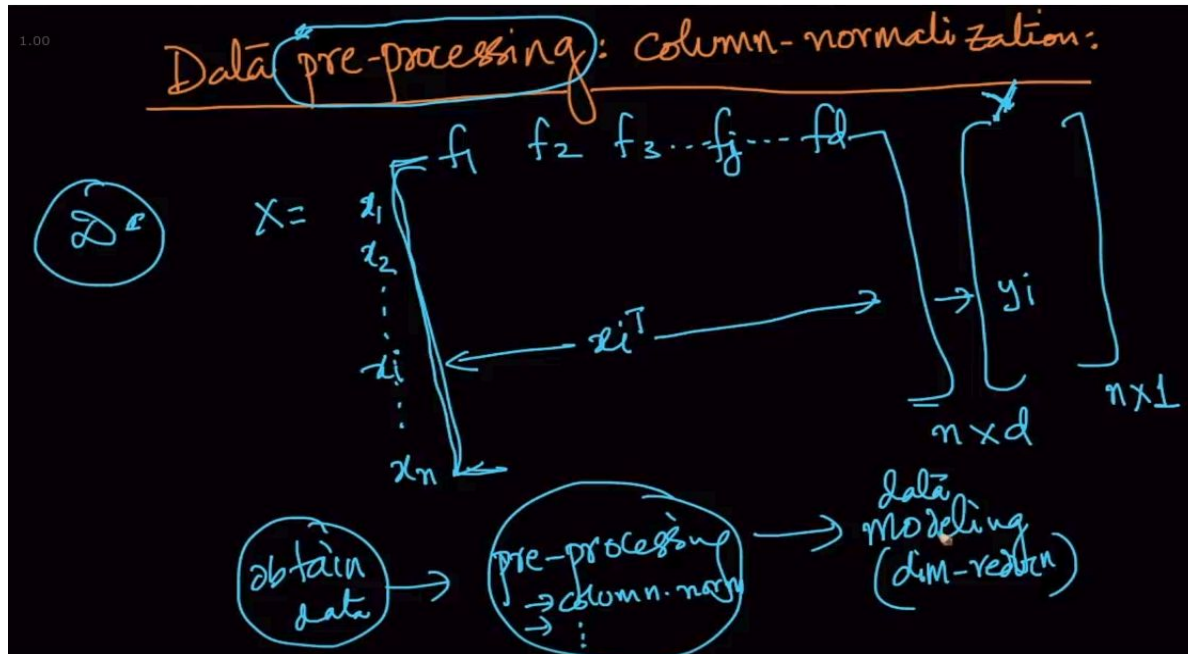 1.00
Data pre-processing: column-normalization:
f1 f2 f3 ... fj ... fd
Y
D
X =
x1
x2
xi
xn
xiT
yi
n x d
n x 1
obtain
data
pre-processing
→ column.norm
→ ⋮
data
modeling
(dim-reducn)